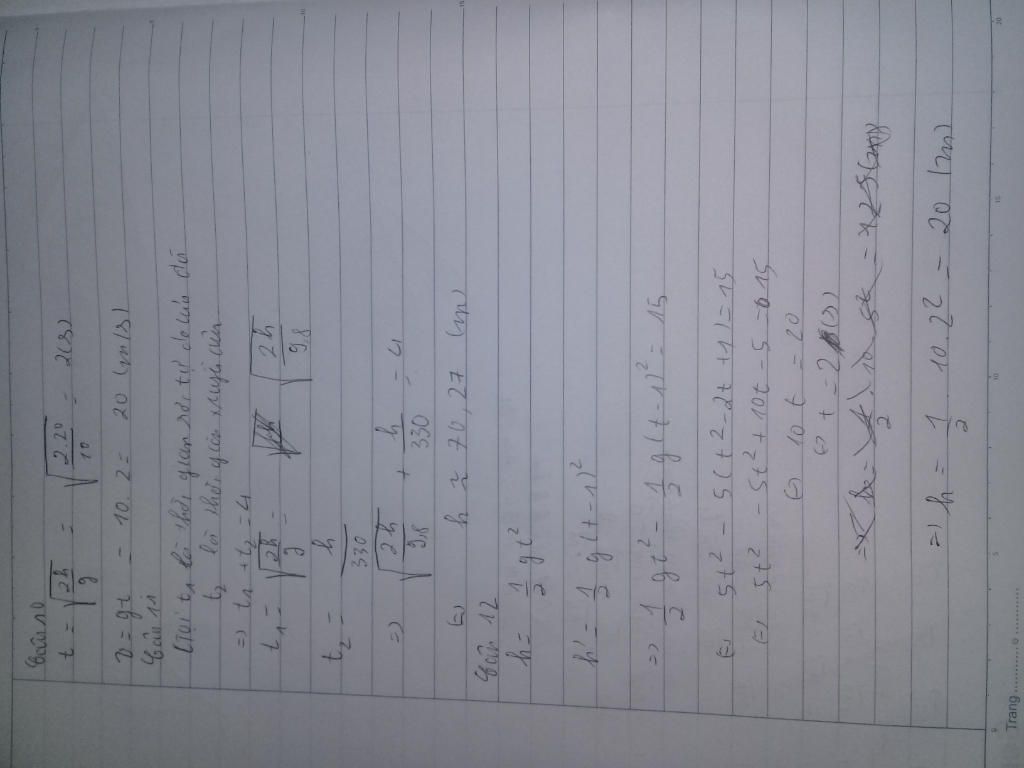 Câu 10
t = √(2h/g) = √(2.20/10) = 2(s)
v = gt = 10.2 = 20 (m/s)
Câu 11
Gọi t1 là thời gian rơi tự do của đá
t2 là thời gian truyền của
=> t1 + t2 = 4
t1 = √(2h/g) = √(2h/9,8)
t2 = h/330
=> √(2h/9,8) + h/330 = 4
(=) h ≈ 70,27 (m)
Câu 12
h = 1/2 gt²
h' = 1/2 g(t-1)²
=> 1/2 gt² - 1/2 g(t-1)² = 15
(=) 5t² - 5(t² - 2t + 1) = 15
(=) 5t² - 5t² + 10t - 5 = 15
(=) 10t = 20
(=) t = 2 (s)
=> h = 1/2 . 10 . 2² = 20 (m)
Trang